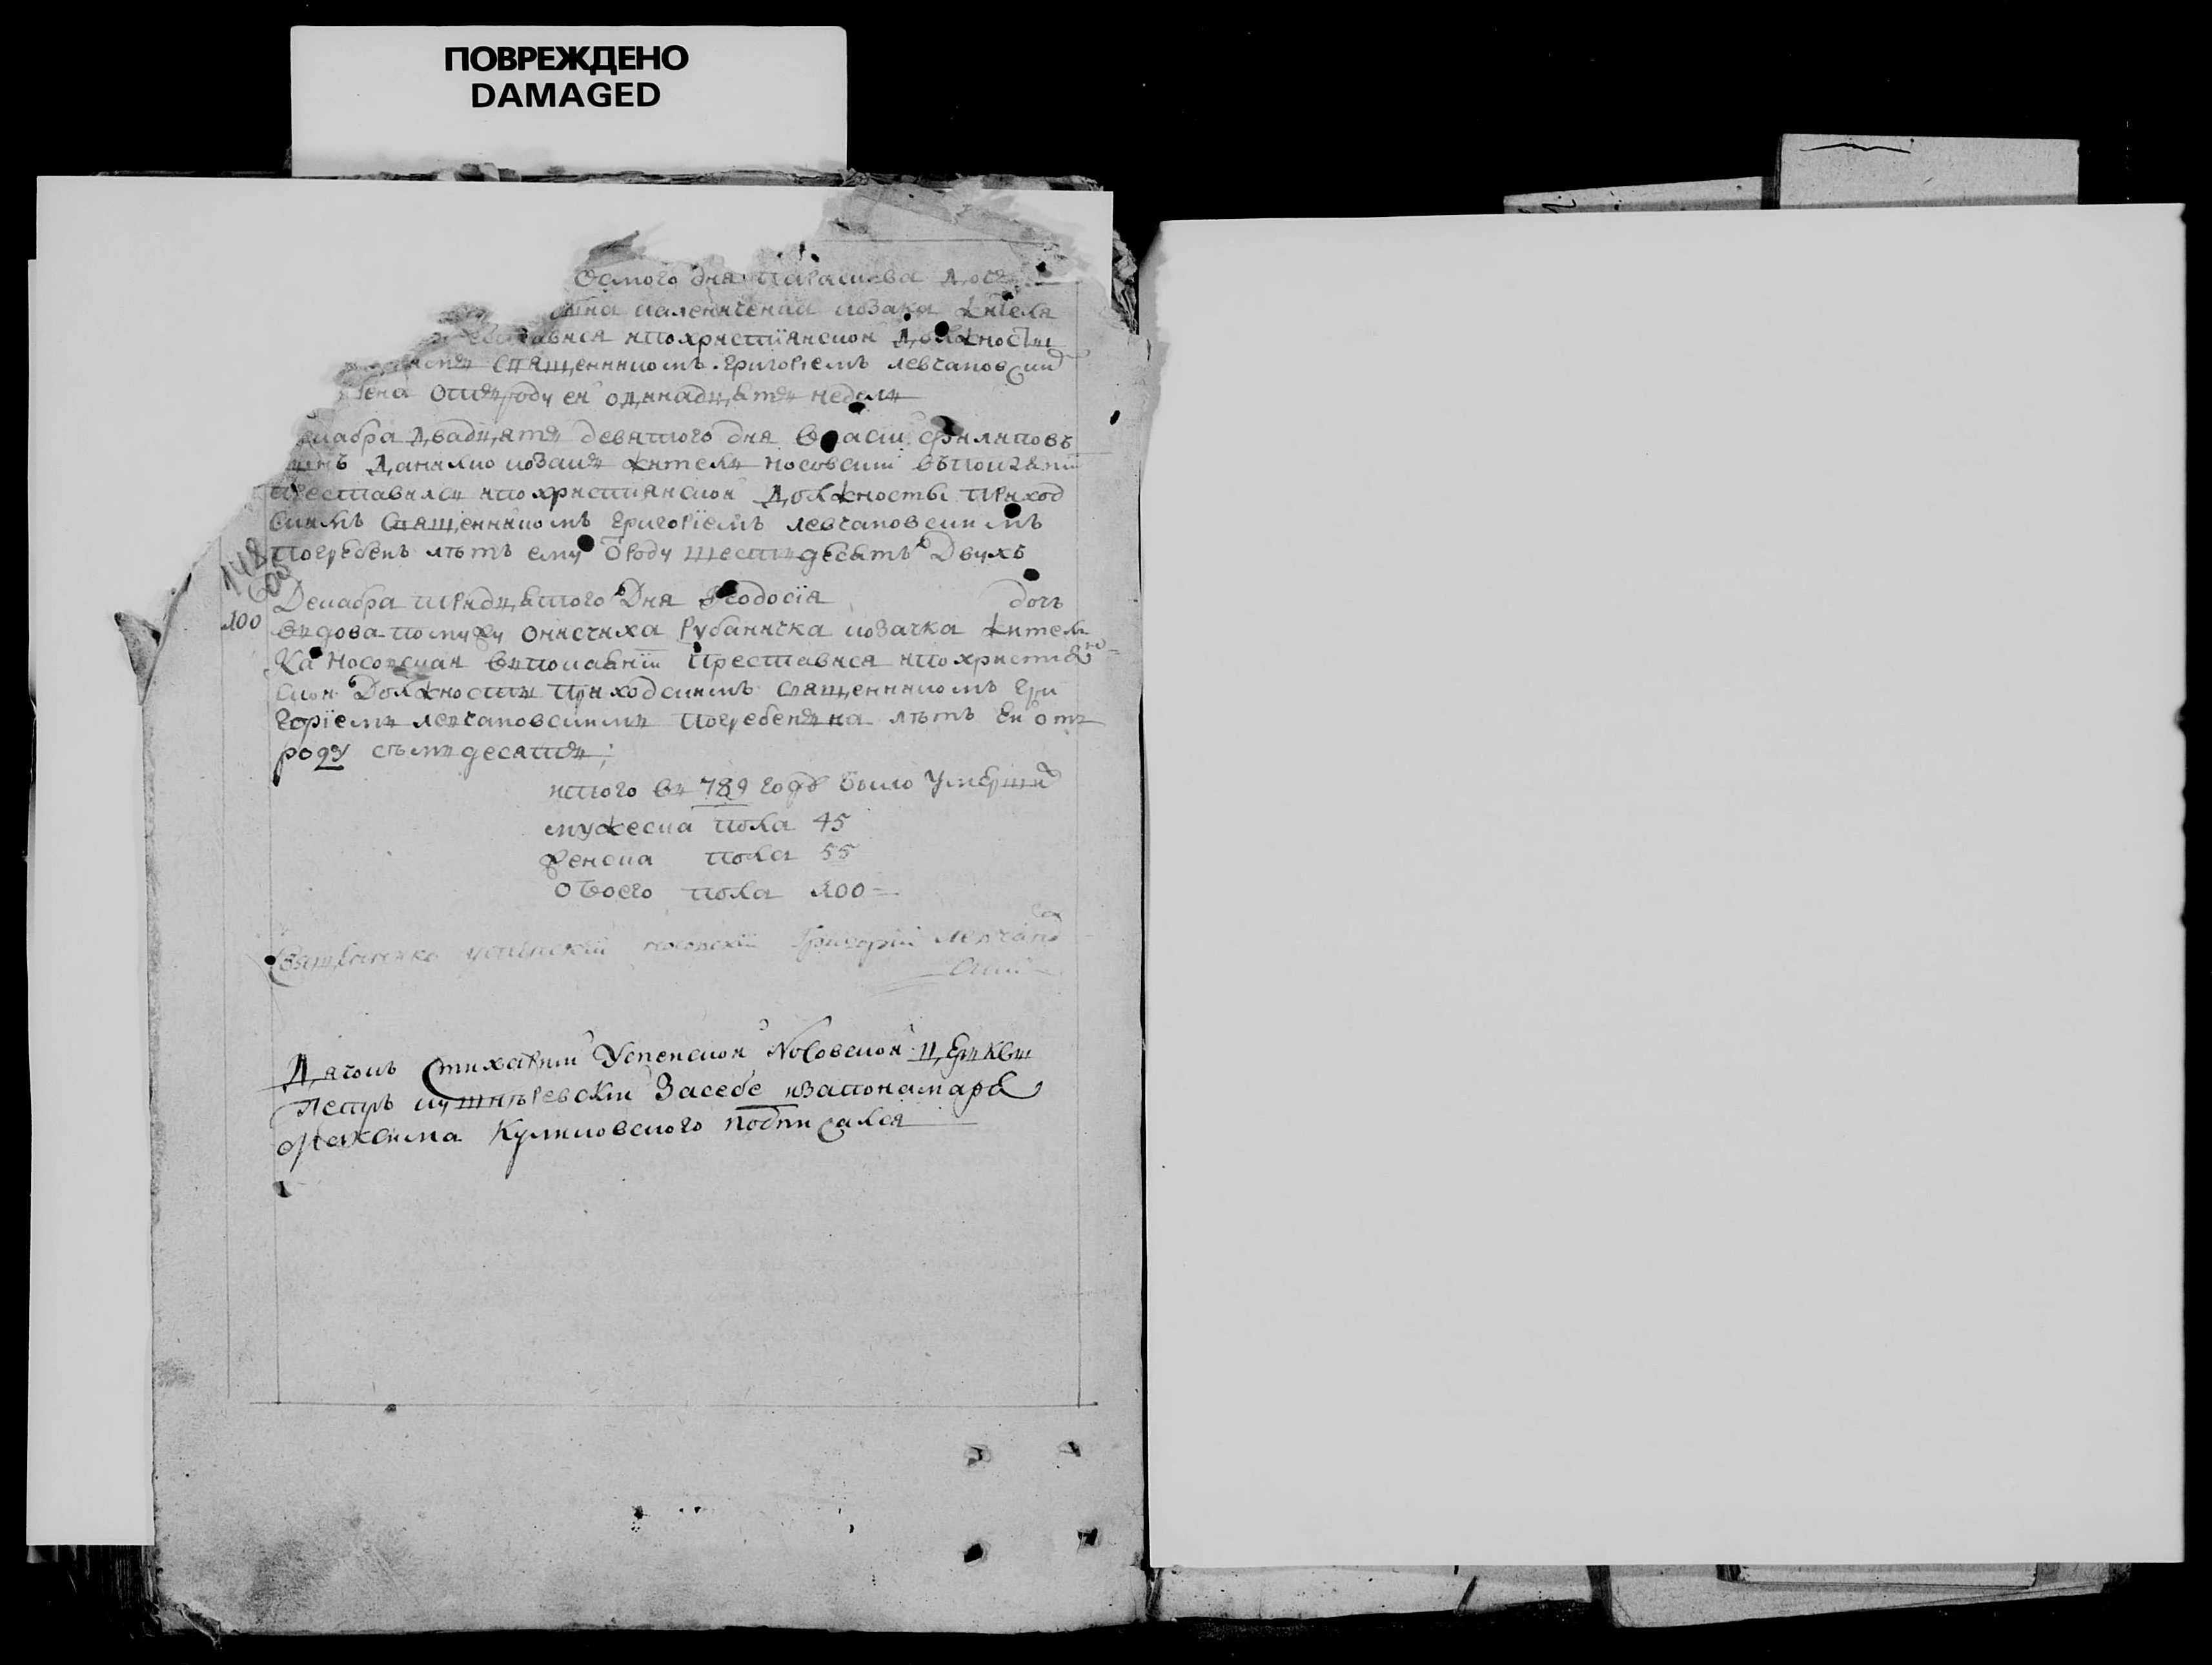 ПОВРЕЖДЕНО
DAMAGED
осмого дня параскева доч
козака жителя
преставися и по христіянской должности
священникомъ григоріемъ левчановский
отъ роду ей одинадцять недель
декабра двадцять девятого дня власій филиповъ
синъ данилко козакъ житель носовский въ
преставился и по християнской должносты приход
скимъ священникомъ григоріемъ левчановскимъ
погребенъ лѣтъ ему ѿ роду шестьдесятъ двухъ
142
100
Декабра тридцятого дня Феодосія дочь
въдова по мужу онисчиха рубаничка козачка жител
ка носовская въ покаяніи преставися и по християн
ской должности приходскимъ священникомъ гри
горіемъ левчановскимъ погребенъна лѣтъ ей отъ
роду сѣмъдесятъ:
итого въ 789 годѣ было умерших
мужеска пола 45
женска пола 55
обоего пола 100
Священникъ успенскій носовскій Григорій Левчанов
ский
Дячокъ стихарний Успенской Носовской церкви
Петръ кушнѣревский за себе и за понамаря
Максима Куликовского подписался